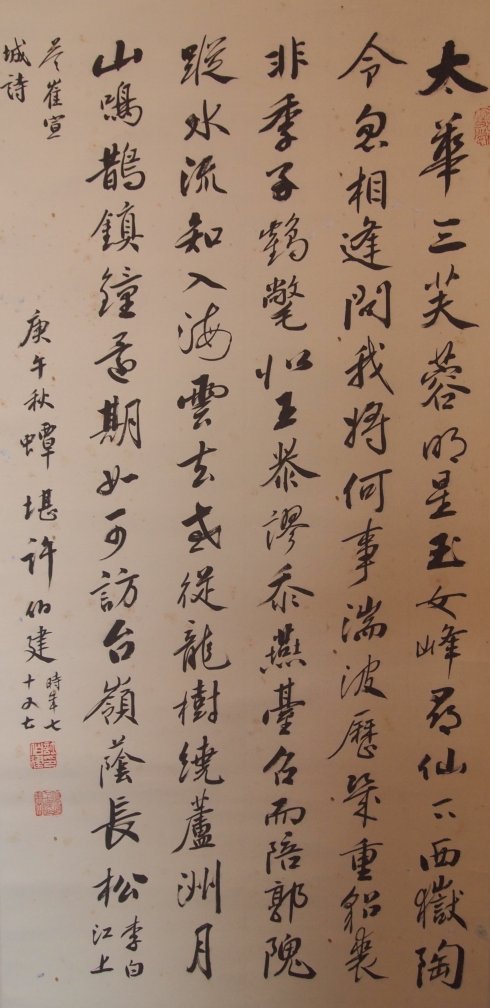 太華三芙蓉明星玉女峰尋仙下西嶽陶
令忽相逢問我將何事湍波歷幾重貂裘
非季子鶴氅似王恭謬忝燕臺召而陪郭隗
蹤水流知入海雲去或從龍樹繞蘆洲月
山鳴鵲鎮鐘還期如可訪台嶺蔭長松
李白
江上
答崔宣
城詩
庚午秋蟫堪許伯建
時年七
十又七